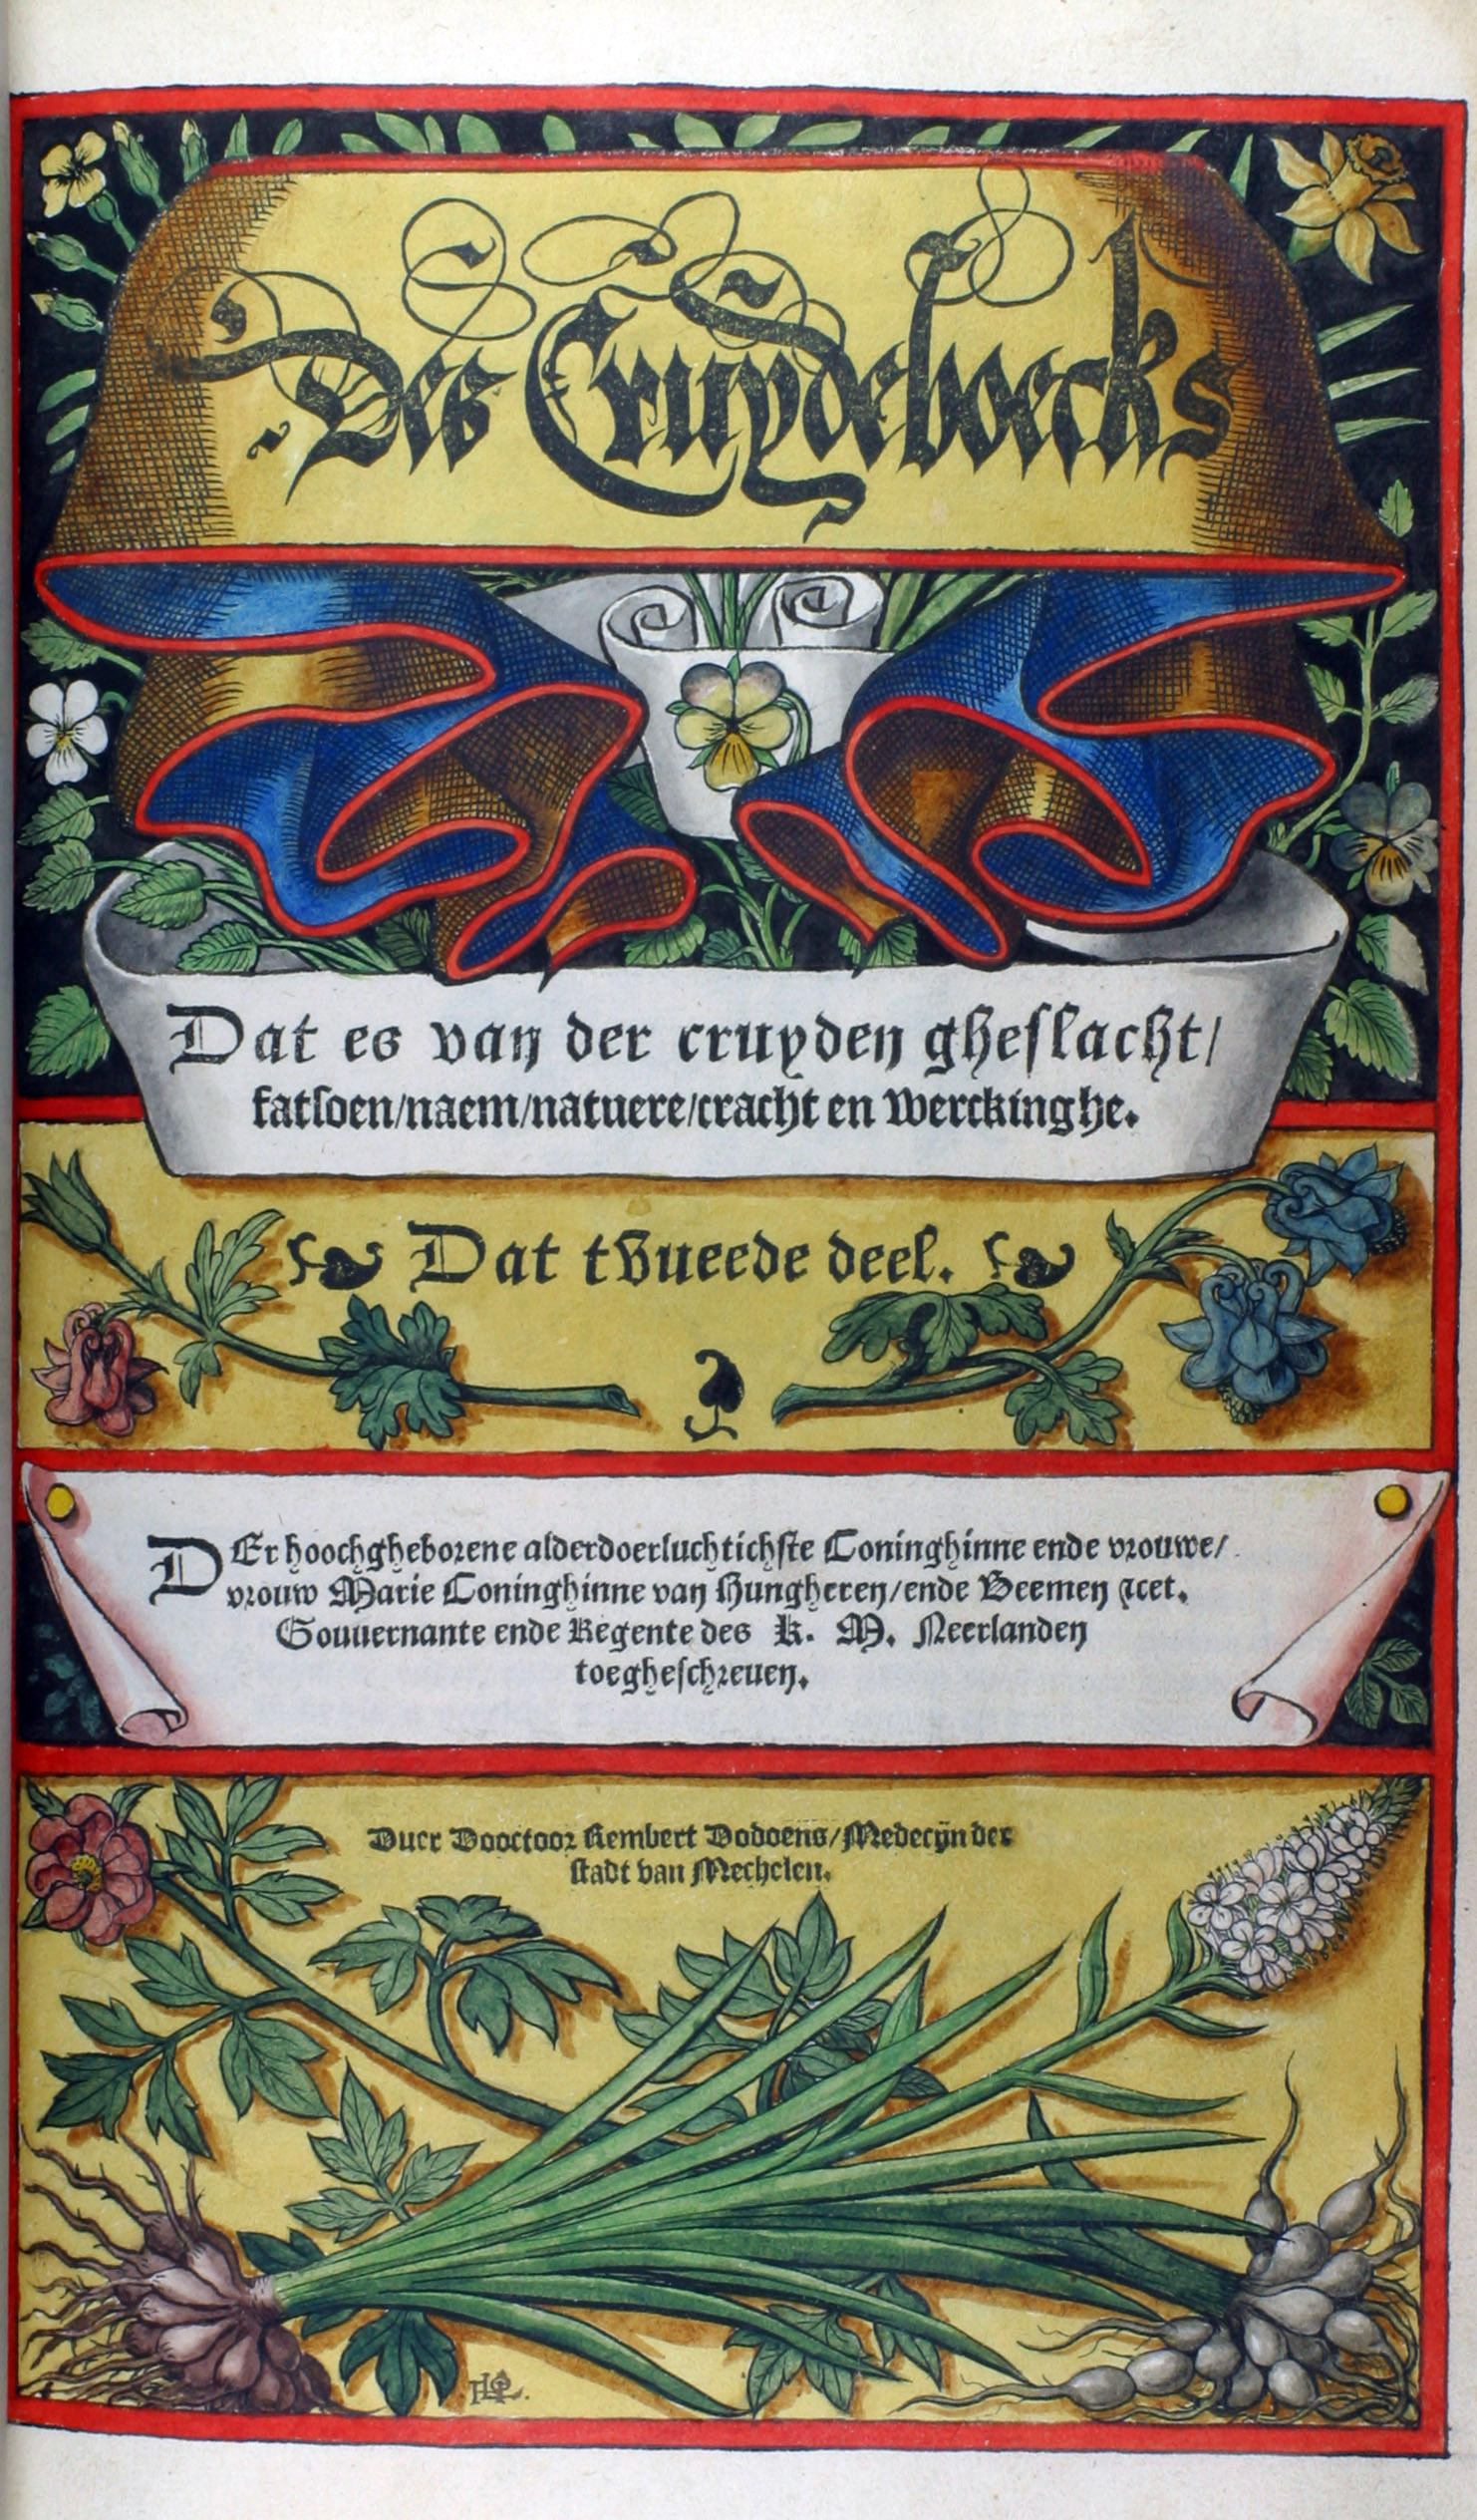 Des Cruydeboecks
Dat es van der cruyden gheslacht/
fatsoen/naem/natuere/cracht en werckinghe.
Dat tweede deel.
DEr hoochgheborene alderdoerluchtichste Coninghinne ende vrouwe/
vrouw Marie Coninghinne van Hungheren/ende Beemen ꝛcet.
Gouuernante ende Regente des K. M. Neerlanden
toegheschreuen.
Duer Dooctoor Rembert Dodoens/Medecijn der
stadt van Mechelen.